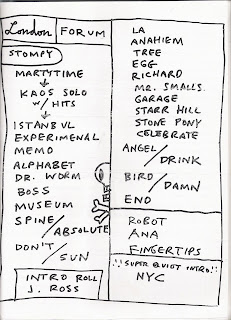 London FORUM
STOMPY
MARTYTIME
KAOS SOLO
W/ HITS
ISTANBUL
EXPERIMENAL
MEMO
ALPHABET
DR. WORM
BOSS
MUSEUM
SPINE/
ABSOLUTE
DON'T/
SUN
INTRO ROLL
J. ROSS
LA
ANAHIEM
TREE
EGG
RICHARD
MR. SMALLS
GARAGE
STARR HILL
STONE PONY
CELEBRATE
ANGEL/
DRINK
BIRD/
DAMN
END
ROBOT
ANA
FINGERTIPS
"SUPER QUIET INTRO"
NYC